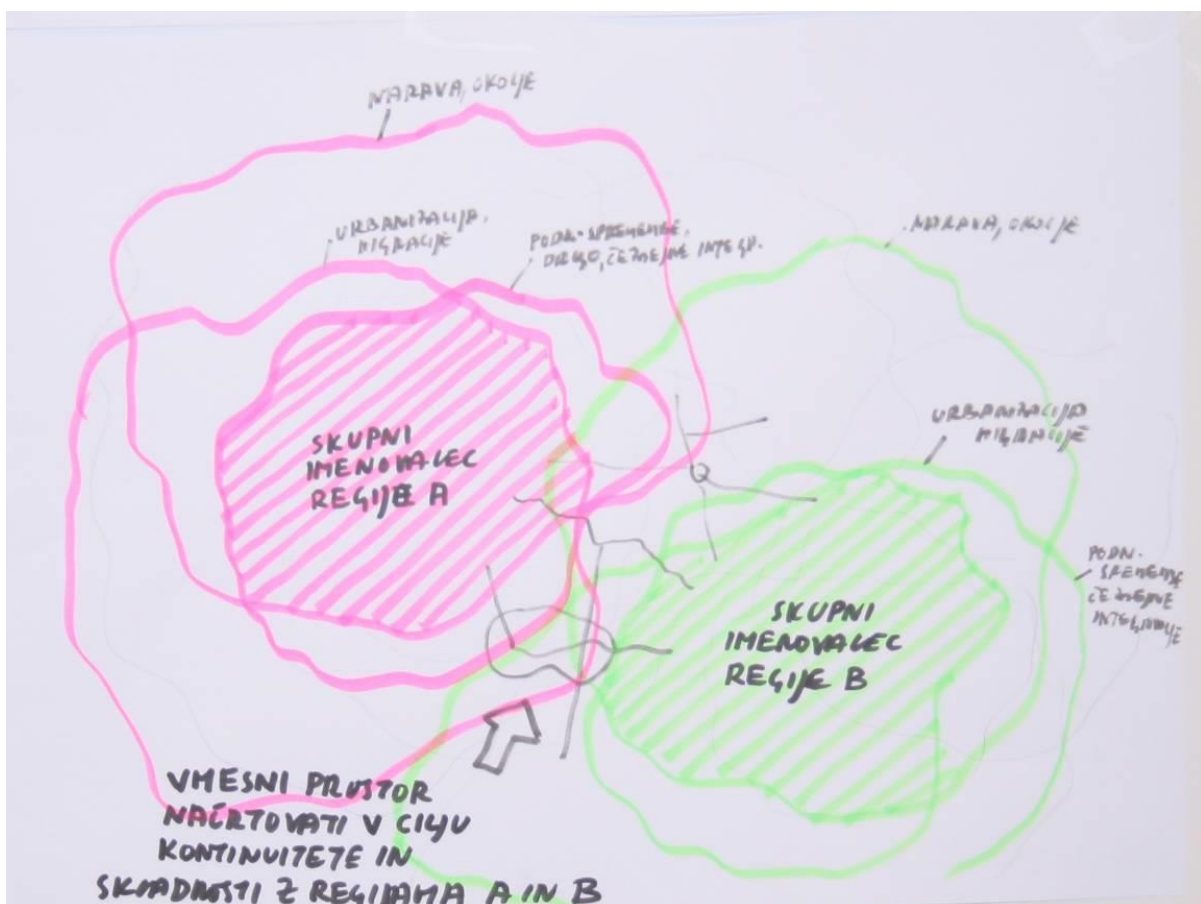 NARAVA, OKOLJE
URBANIZACIJA,
MIGRACIJE
PODN. SPREMEMBE,
DRUGO, ČEZMEJNE INTEGR.
NARAVA, OKOLJE
URBANIZACIJA
MIGRACIJE
PODN.
SPREMEMBE
ČEZMEJNE
INTEGRACIJE
SKUPNI
IMENOVALEC
REGIJE A
SKUPNI
IMENOVALEC
REGIJE B
VMESNI PROSTOR
NAČRTOVATI V CILJU
KONTINUITETE IN
SKLADNOSTI Z REGIJAMA A IN B